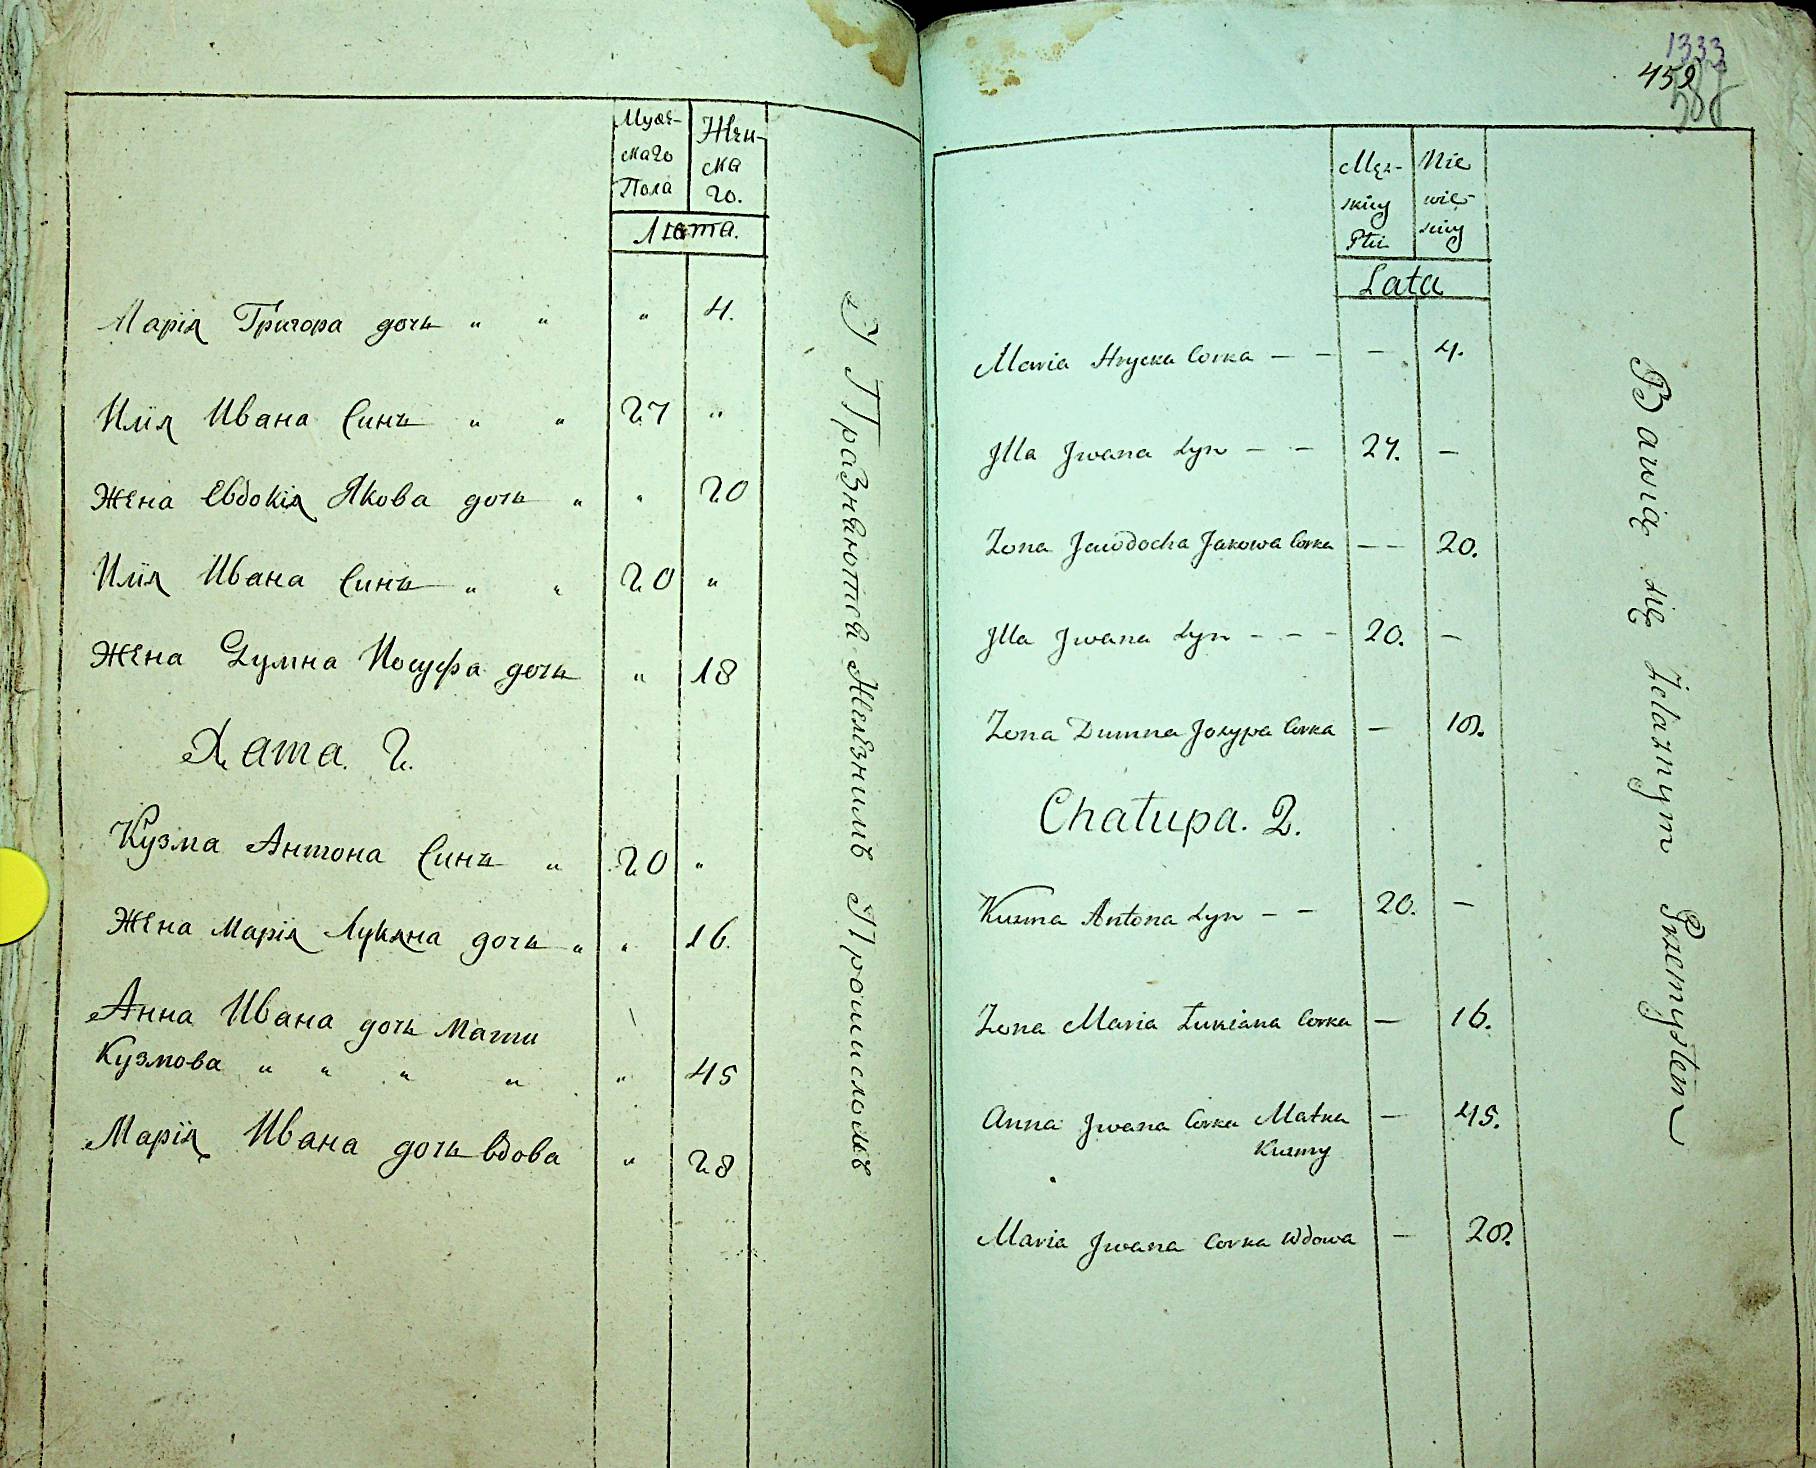 Муже- Жен-
скаго ска
Пола го.
Лѣта.
Марія Григора дочь " " " 4.
Илія Ивана Синъ " " 27 "
Жена Евдокія Якова дочь " " 20
Илія Ивана Синъ " " 20 "
Жена Думна Иосуфа дочь " 18
Хата. 2.
Кузма Антона Синъ " 20 "
Жена Марія Лукяна дочь " " 16.
Анна Ивана дочь Мати
Кузмова " " " " " 45
Марія Ивана дочь вдова " 28
Упразнаются Желѣзнимъ Промисломъ
1333
459
Męz- Nie
skiey wie-
Płci sciey
Lata
Maria Hrycka Corka – – – 4.
Jlla Jwana Syn – – 27. –
Zona Jewdocha Jakowa Corka – – 20.
Jlla Jwana Syn – – – 20. –
Zona Dumna Josypa Corka – 18.
Chałupa. 2.
Kuzma Antona Syn – – 20. –
Zona Maria Łukiana Corka – 16.
Anna Jwana Corka Matka – 45.
Kuzmy
Maria Jwana Corka Wdowa – 28.
Bawią się Żelaznym Przemysłem